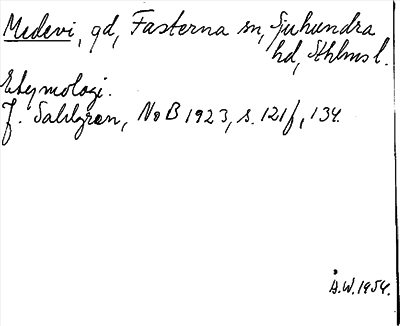 Medevi, gd, Fasterna sn, Sjuhundra
hd, Sthlms l.
Etymologi.
J. Sahlgren, NoB 1923, s. 121f, 134.
Å.W. 1954.